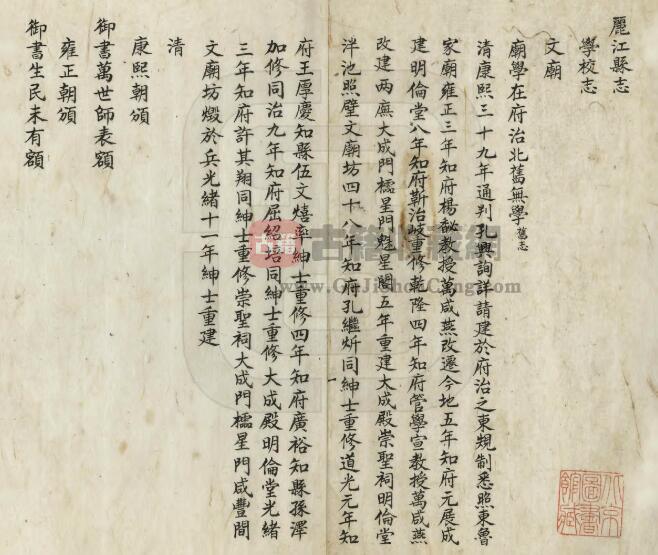 麗江縣志
學校志
文廟
廟學在府治北舊無學舊志
清康熙三十九年通判孔興詢詳請建於府治之東規制悉照東魯
家廟雍正三年知府楊馝教授萬咸燕改遷今地五年知府元展成
建明倫堂八年知府靳治岐重修乾隆四年知府管學宣教授萬咸燕
改建兩廡大成門櫺星門魁星閣五年重建大成殿崇聖祠明倫堂
泮池照壁文廟坊四十八年知府孔繼炘同紳士重修道光元年知
府王厚慶知縣伍文熺率紳士重修四年知府廣裕知縣孫澤
加修同治九年知府屈紹培同紳士重修大成殿明倫堂光緒
三年知府許其翔同紳士重修崇聖祠大成門櫺星門咸豐間
文廟坊燬於兵光緒十一年紳士重建
清
康熙朝頒
御書萬世師表額
雍正朝頒
御書生民未有額
古籍
www.GuJiShouCang.com